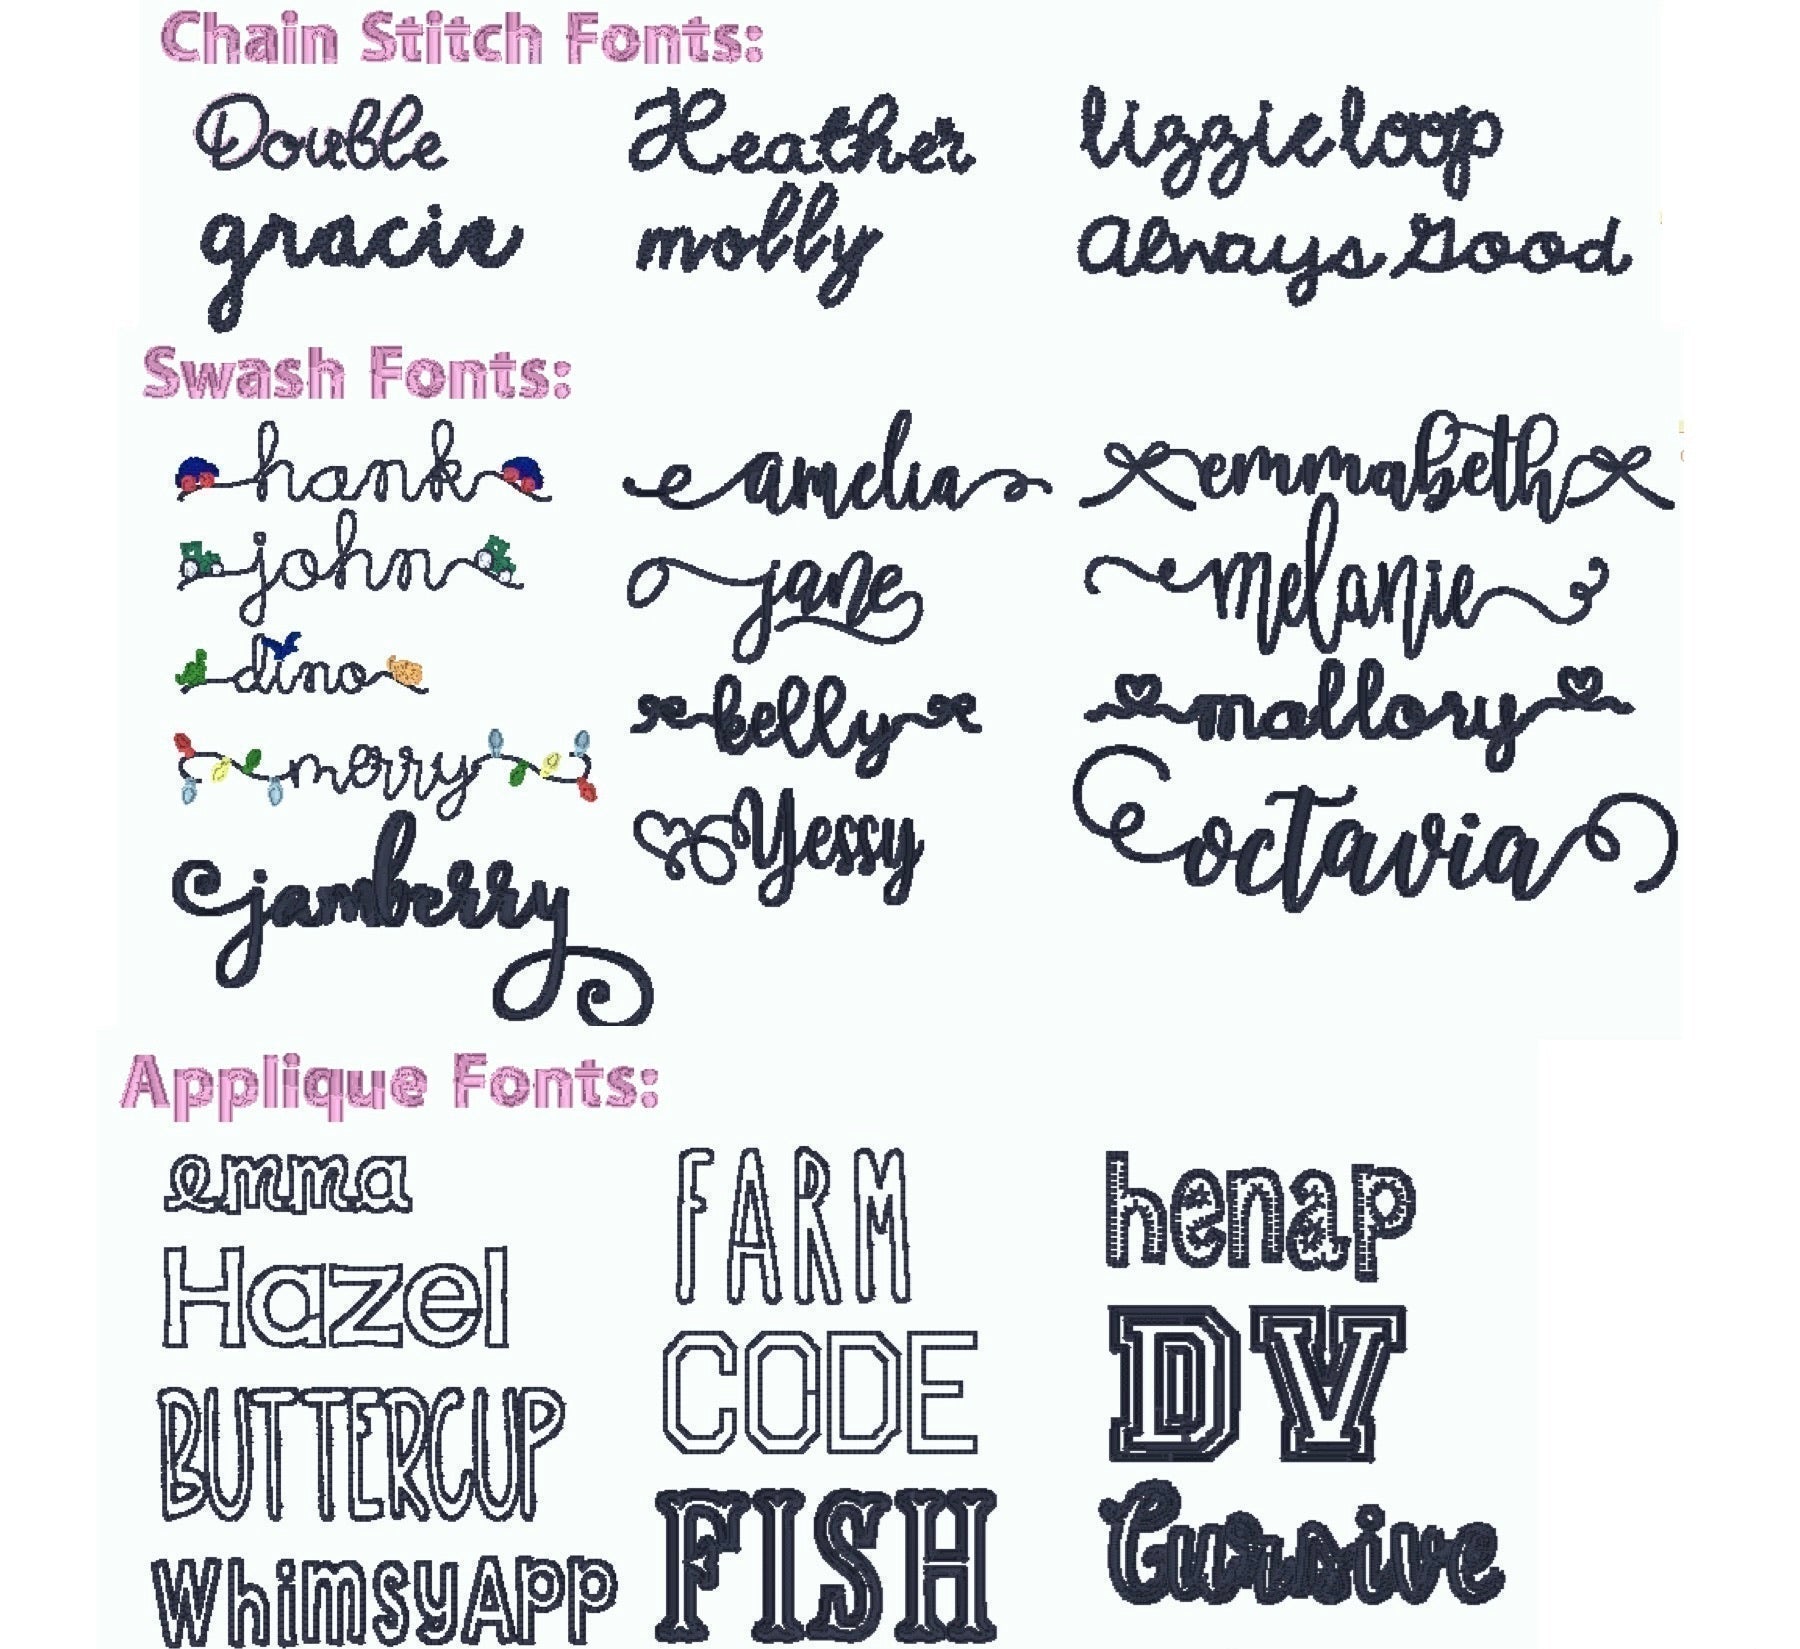 Chain Stitch Fonts:
Double
Heather
lizzieloop
gracie
molly
Always Good
Swash Fonts:
hank
amelia
emmabeth
john
jane
melanie
dino
kelly
mallory
merry
Yessy
octavia
jamberry
Applique Fonts:
emma
FARM
henap
Hazel
CODE
DV
BUTTERCUP
FISH
Cursive
WhimsyApp